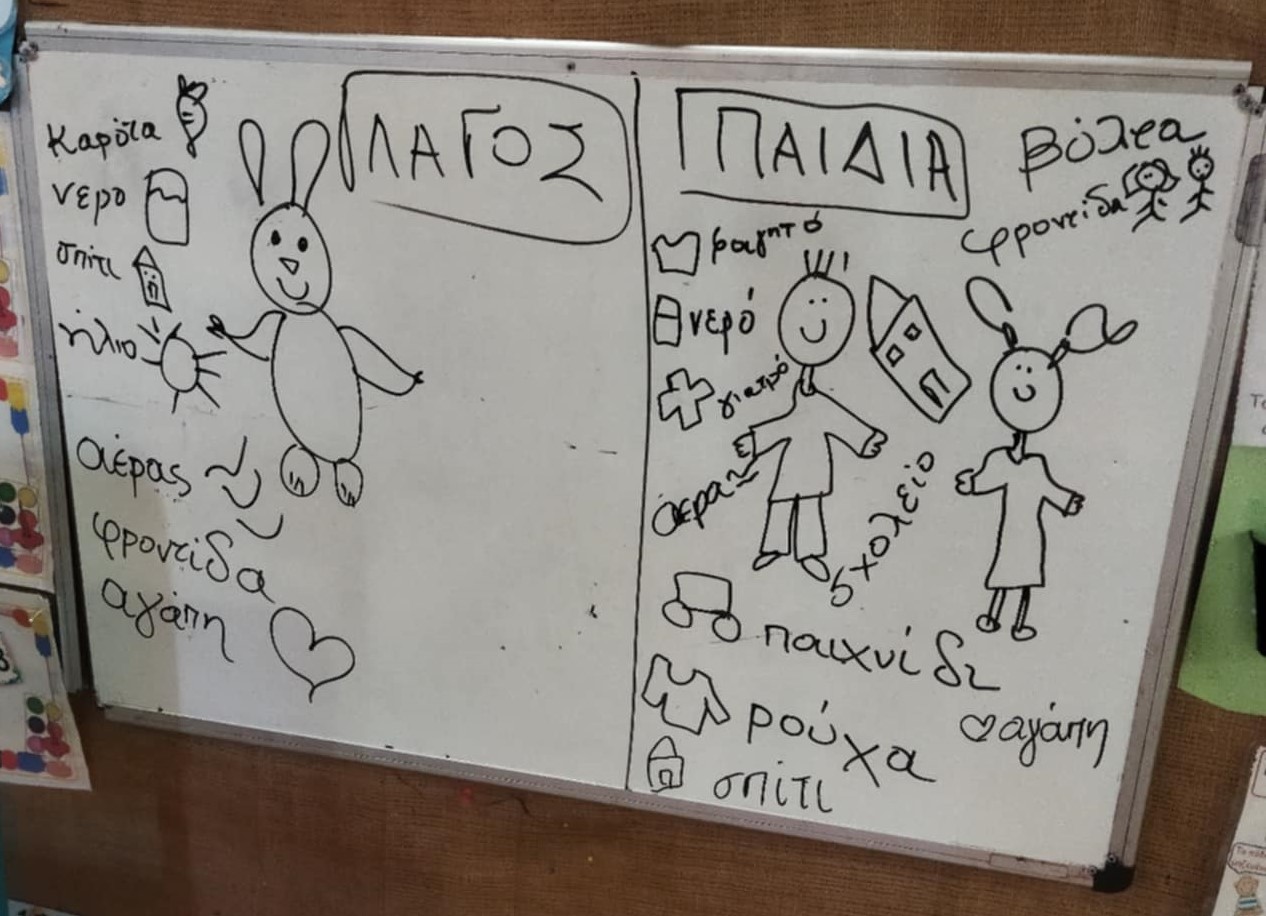 ΛΑΓΟΣ
καρότα
νερο
σπίτι
ήλιο
αέρας
φροντίδα
αγάπη
ΠΑΙΔΙΑ
βόλτα
φροντίδα
φαγητό
νερό
γιατρό
αέρα
σχολείο
παιχνίδι
ρούχα
αγάπη
σπίτι